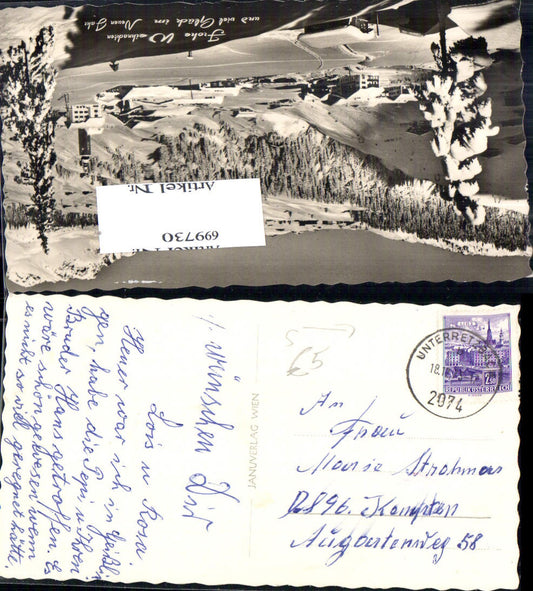 Frohe Weihnachten
und viel Glück im Neuen Jahr
Artikel Nr.
699730
Artikel Nr.
wünschen Dir
Lois u Rosi.
Heuer war ich in
gen, habe die Pepi u Ihren
Bruder Hans getroffen. Es
wäre schön gewesen wenn
es nicht so viel geregnet hätte.
JANUVERLAG WIEN
65
UNTERRET
18.
2074
REPUBLIK ÖSTERREICH
An
Frau
Marie Strohmer
D896 Kempten
Augartenweg 58